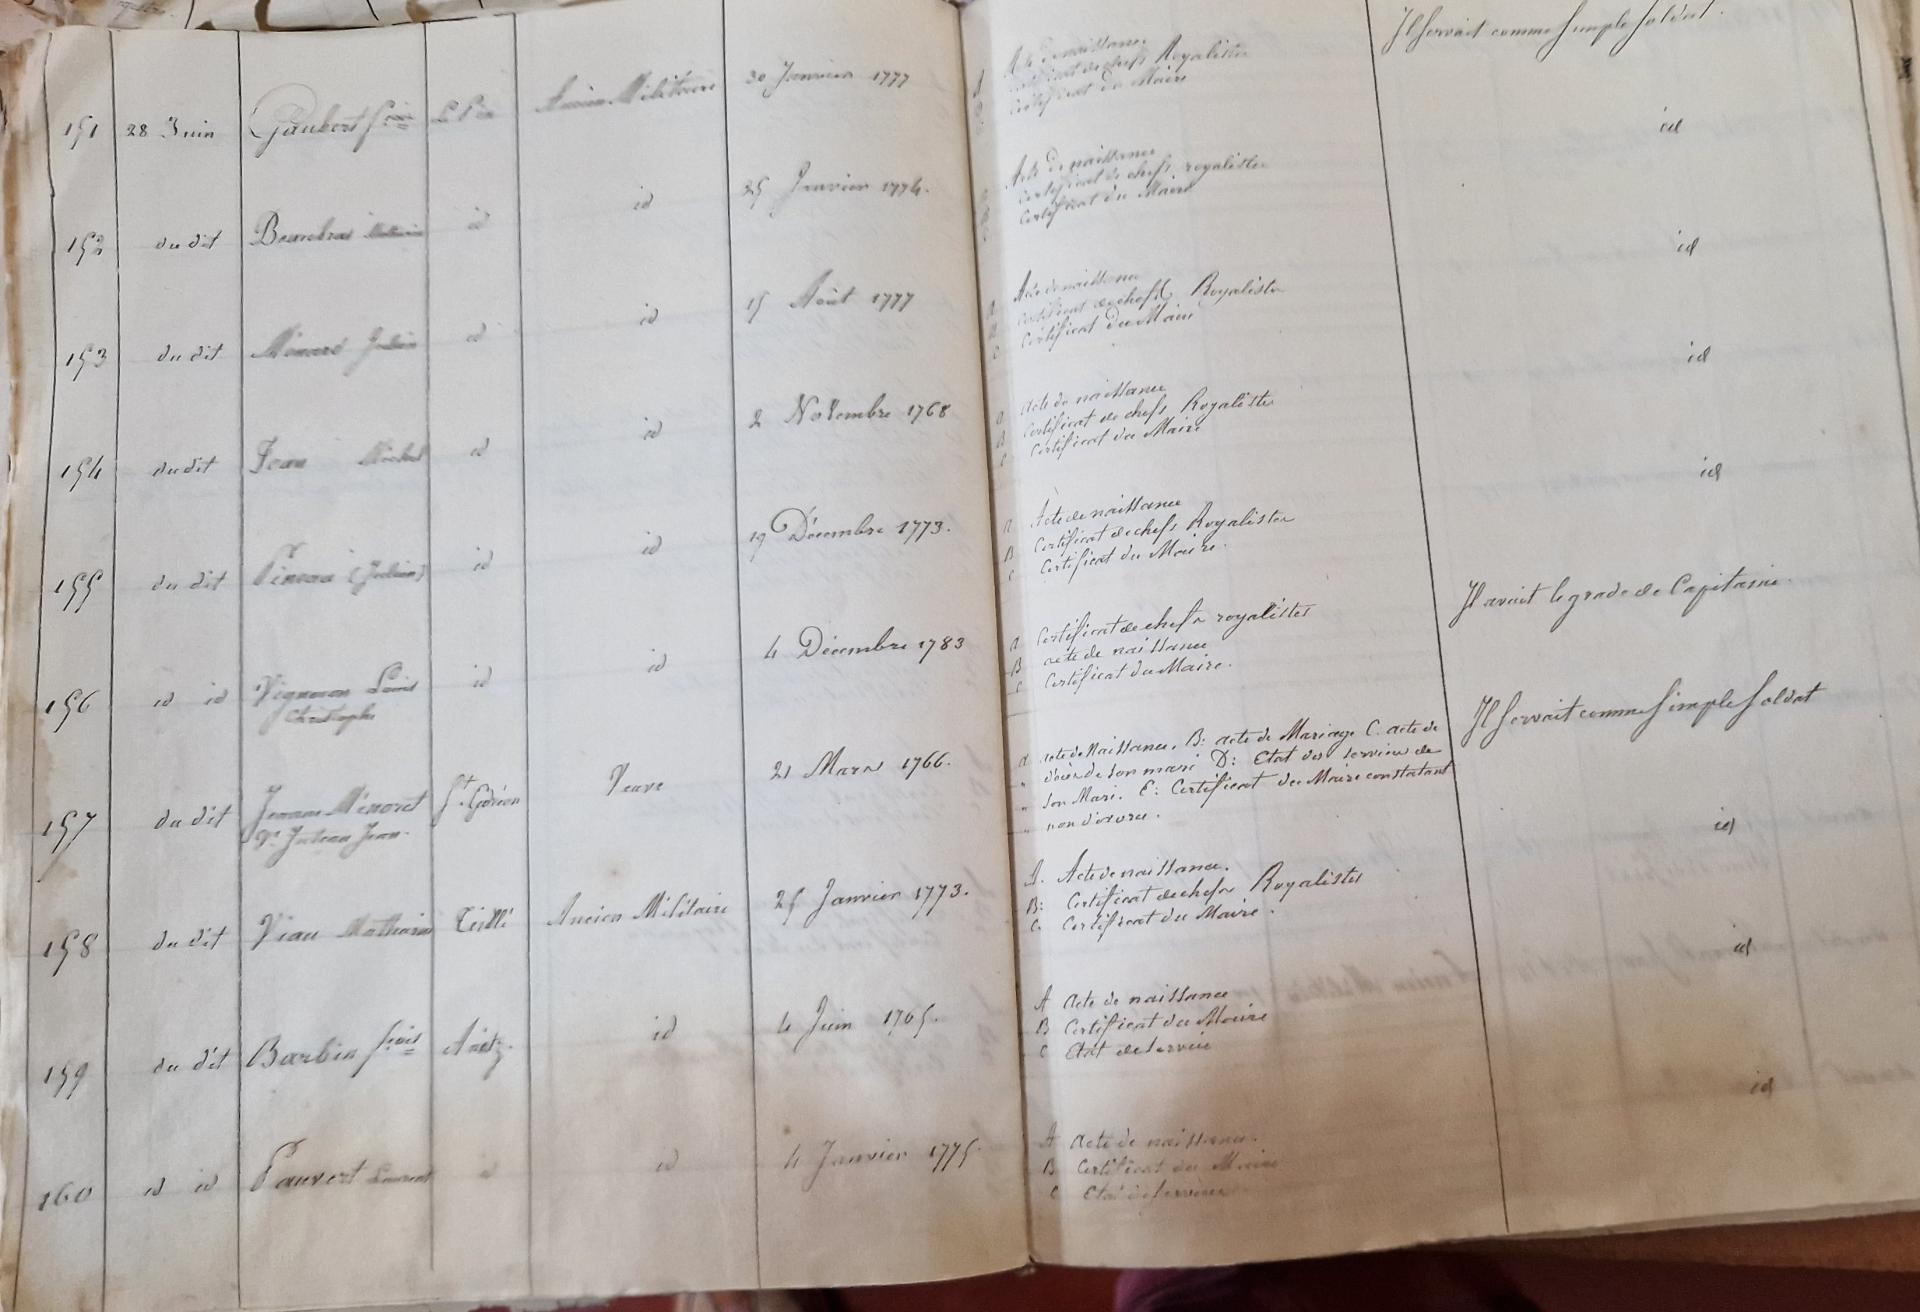 151 28 Juin Gaubert f.çois Le Pin Ancien Militaire 30 Janvier 1777
Acte de naissance
Certificat de chefs Royalistes
Certificat du Maire
Il servait comme simple soldat.
152 du dit Beaubras id id 25 Janvier 1774.
Acte de naissance
Certificat de chefs royalistes
Certificat du Maire
id
153 du dit Ménard Julien id id 15 Août 1777
Acte de naissance
Certificat de chefs Royalistes
Certificat du Maire
id
154 du dit Jean Michel id id 2 Novembre 1768
A acte de naissance
B Certificat de chefs Royalistes
C Certificat du Maire
id
155 du dit Pineau (Julien) id id 19 Décembre 1773.
A Acte de naissance
B Certificat de chefs Royalistes
C Certificat du Maire.
id
156 id id Vigneron Louis id id 4 Décembre 1783
Christophe
A Certificat de chefs royalistes
B acte de naissance
C Certificat du Maire.
Il avait le grade de Capitaine.
157 du dit Jeanne Ménoret St. Géréon Veuve 21 Mars 1766.
Ve Juteau Jean.
A acte de Naissance. B: acte de Mariage C. acte de
" décès de son mari D: Etat des services de
" son Mari. E: Certificat du Maire constatant
" non divorce.
Il servait comme simple soldat
158 du dit Viau Mathurin Teillé Ancien Militaire 25 Janvier 1773.
A. Acte de naissance.
B: Certificat de chefs Royalistes
C. Certificat du Maire.
id
159 du dit Barbin f.çois Anetz. id 4 Juin 1765.
A Acte de naissance
B Certificat du Maire
C Etat de service
id
160 id id Pauvert Laurent id id 4 Janvier 1775.
A Acte de naissance.
B Certificat du Maire
C Etat de services
id